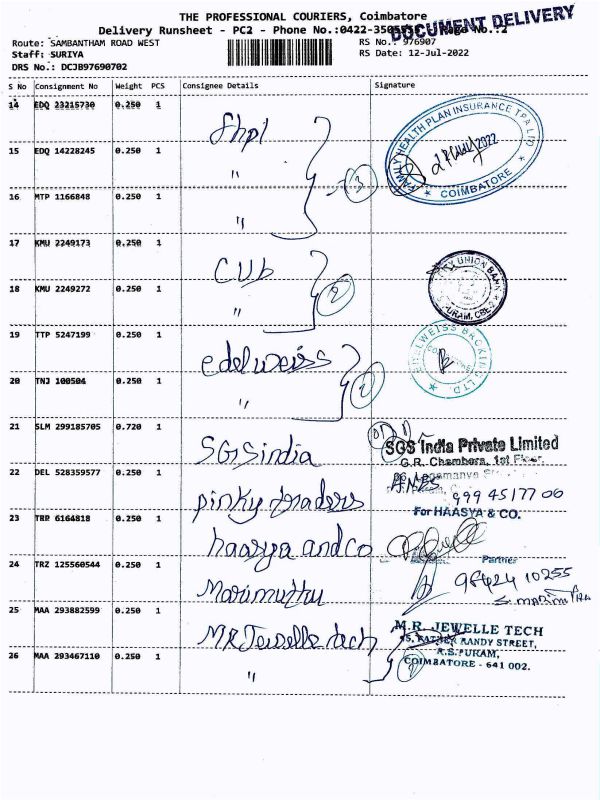 THE PROFESSIONAL COURIERS, Coimbatore
DOCUMENT DELIVERY
Delivery Runsheet - PC2 - Phone No.:0422-350 Page No.:2
Route: SAMBANTHAM ROAD WEST
RS No.: 976907
Staff: SURIYA
RS Date: 12-Jul-2022
DRS No.: DCJB97690702
S No Consignment No Weight PCS Consignee Details Signature
14 EDQ 23215730 0.250 1 fhpl
FAMILY HEALTH PLAN INSURANCE TPA LTD
COIMBATORE
15 EDQ 14228245 0.250 1 "
3
16 MTP 1166848 0.250 1 "
17 KMU 2249173 0.250 1 CUB
UNION BANK
PURAM, CBE-2
18 KMU 2249272 0.250 1 "
2
19 TTP 5247199 0.250 1 edelweiss
EDELWEISS BROKING LTD.
20 TNJ 100504 0.250 1 "
2
21 SLM 299185705 0.720 1 SGS india
SGS India Private Limited
G.R. Chambers, 1st Floor,
22 DEL 528359577 0.250 1 pinky traders
99945177 00
For HAASYA & CO.
23 TRP 6164818 0.250 1 haasya and co
Partner
24 TRZ 125560544 0.250 1 Marimuthu
98424 10255
25 MAA 293882599 0.250 1 MR Jewelle tech
M.R. JEWELLE TECH
STREET,
R.S.PURAM,
COIMBATORE - 641 002.
26 MAA 293467110 0.250 1 "
2